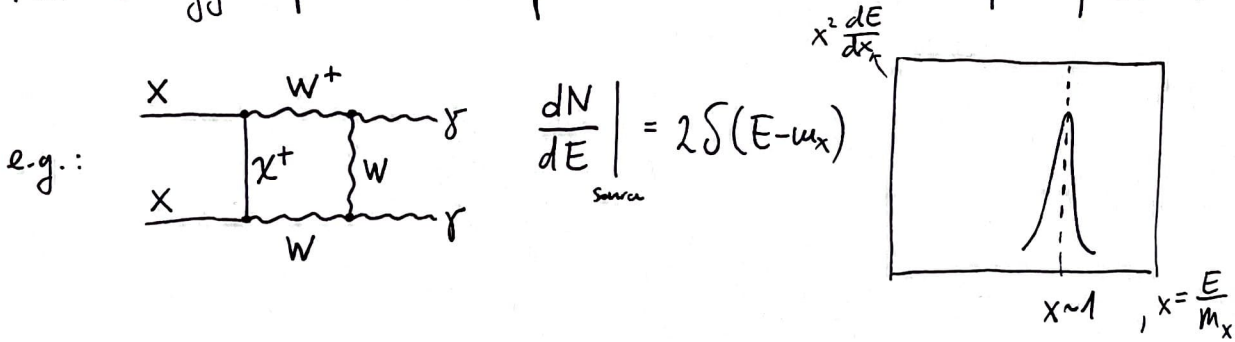 e.g.:
X
W⁺
γ
χ⁺
W
X
W
γ
dN/dE |source = 2δ(E-mχ)
x² dE/dx
x~1 , x = E/mχ